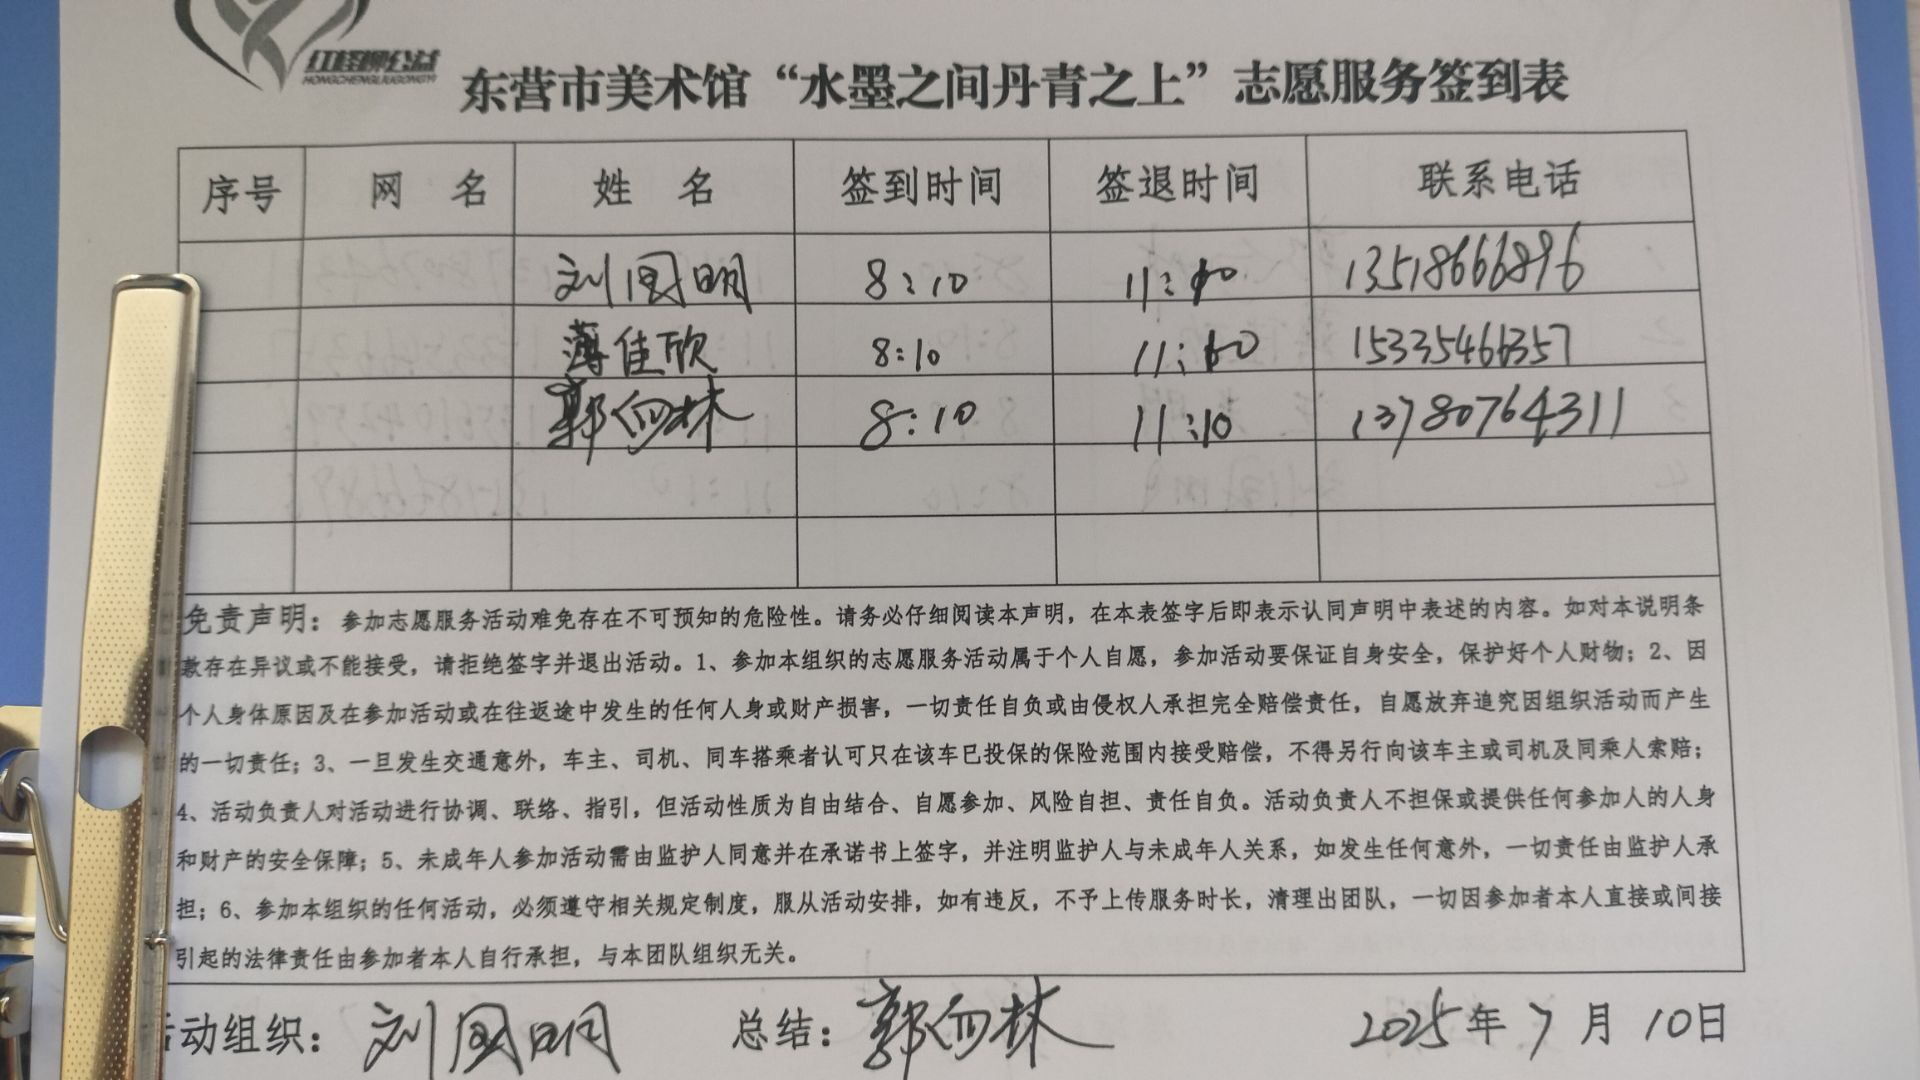 红柽柳公益
HONGCHENGLIUGONGYI
东营市美术馆“水墨之间丹青之上”志愿服务签到表
序号 网 名 姓 名 签到时间 签退时间 联系电话
刘国明 8:10 11:10 13518666896
薄佳欣 8:10 11:10 15335466357
郭向林 8:10 11:10 13780764311
免责声明：参加志愿服务活动难免存在不可预知的危险性。请务必仔细阅读本声明，在本表签字后即表示认同声明中表述的内容。如对本说明条
款存在异议或不能接受，请拒绝签字并退出活动。1、参加本组织的志愿服务活动属于个人自愿，参加活动要保证自身安全，保护好个人财物；2、因
个人身体原因及在参加活动或在往返途中发生的任何人身或财产损害，一切责任自负或由侵权人承担完全赔偿责任，自愿放弃追究因组织活动而产生
的一切责任；3、一旦发生交通意外，车主、司机、同车搭乘者认可只在该车已投保的保险范围内接受赔偿，不得另行向该车主或司机及同乘人索赔；
4、活动负责人对活动进行协调、联络、指引，但活动性质为自由结合、自愿参加、风险自担、责任自负。活动负责人不担保或提供任何参加人的人身
和财产的安全保障；5、未成年人参加活动需由监护人同意并在承诺书上签字，并注明监护人与未成年人关系，如发生任何意外，一切责任由监护人承
担；6、参加本组织的任何活动，必须遵守相关规定制度，服从活动安排，如有违反，不予上传服务时长，清理出团队，一切因参加者本人直接或间接
引起的法律责任由参加者本人自行承担，与本团队组织无关。
活动组织：刘国明 总结：郭向林 2025年7月10日